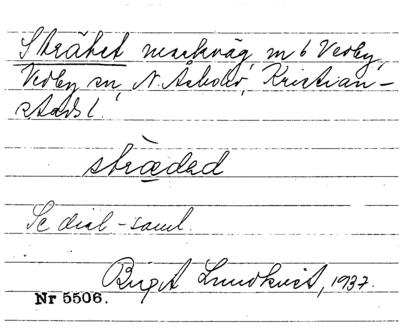 Strätet markväg, m 6 Verby,
Verby sn, N. Åsbo hd, Kristian-
stads l.
stræded
Se dial-saml.
Birgit Lundkvist, 1937.
Nr 5506.